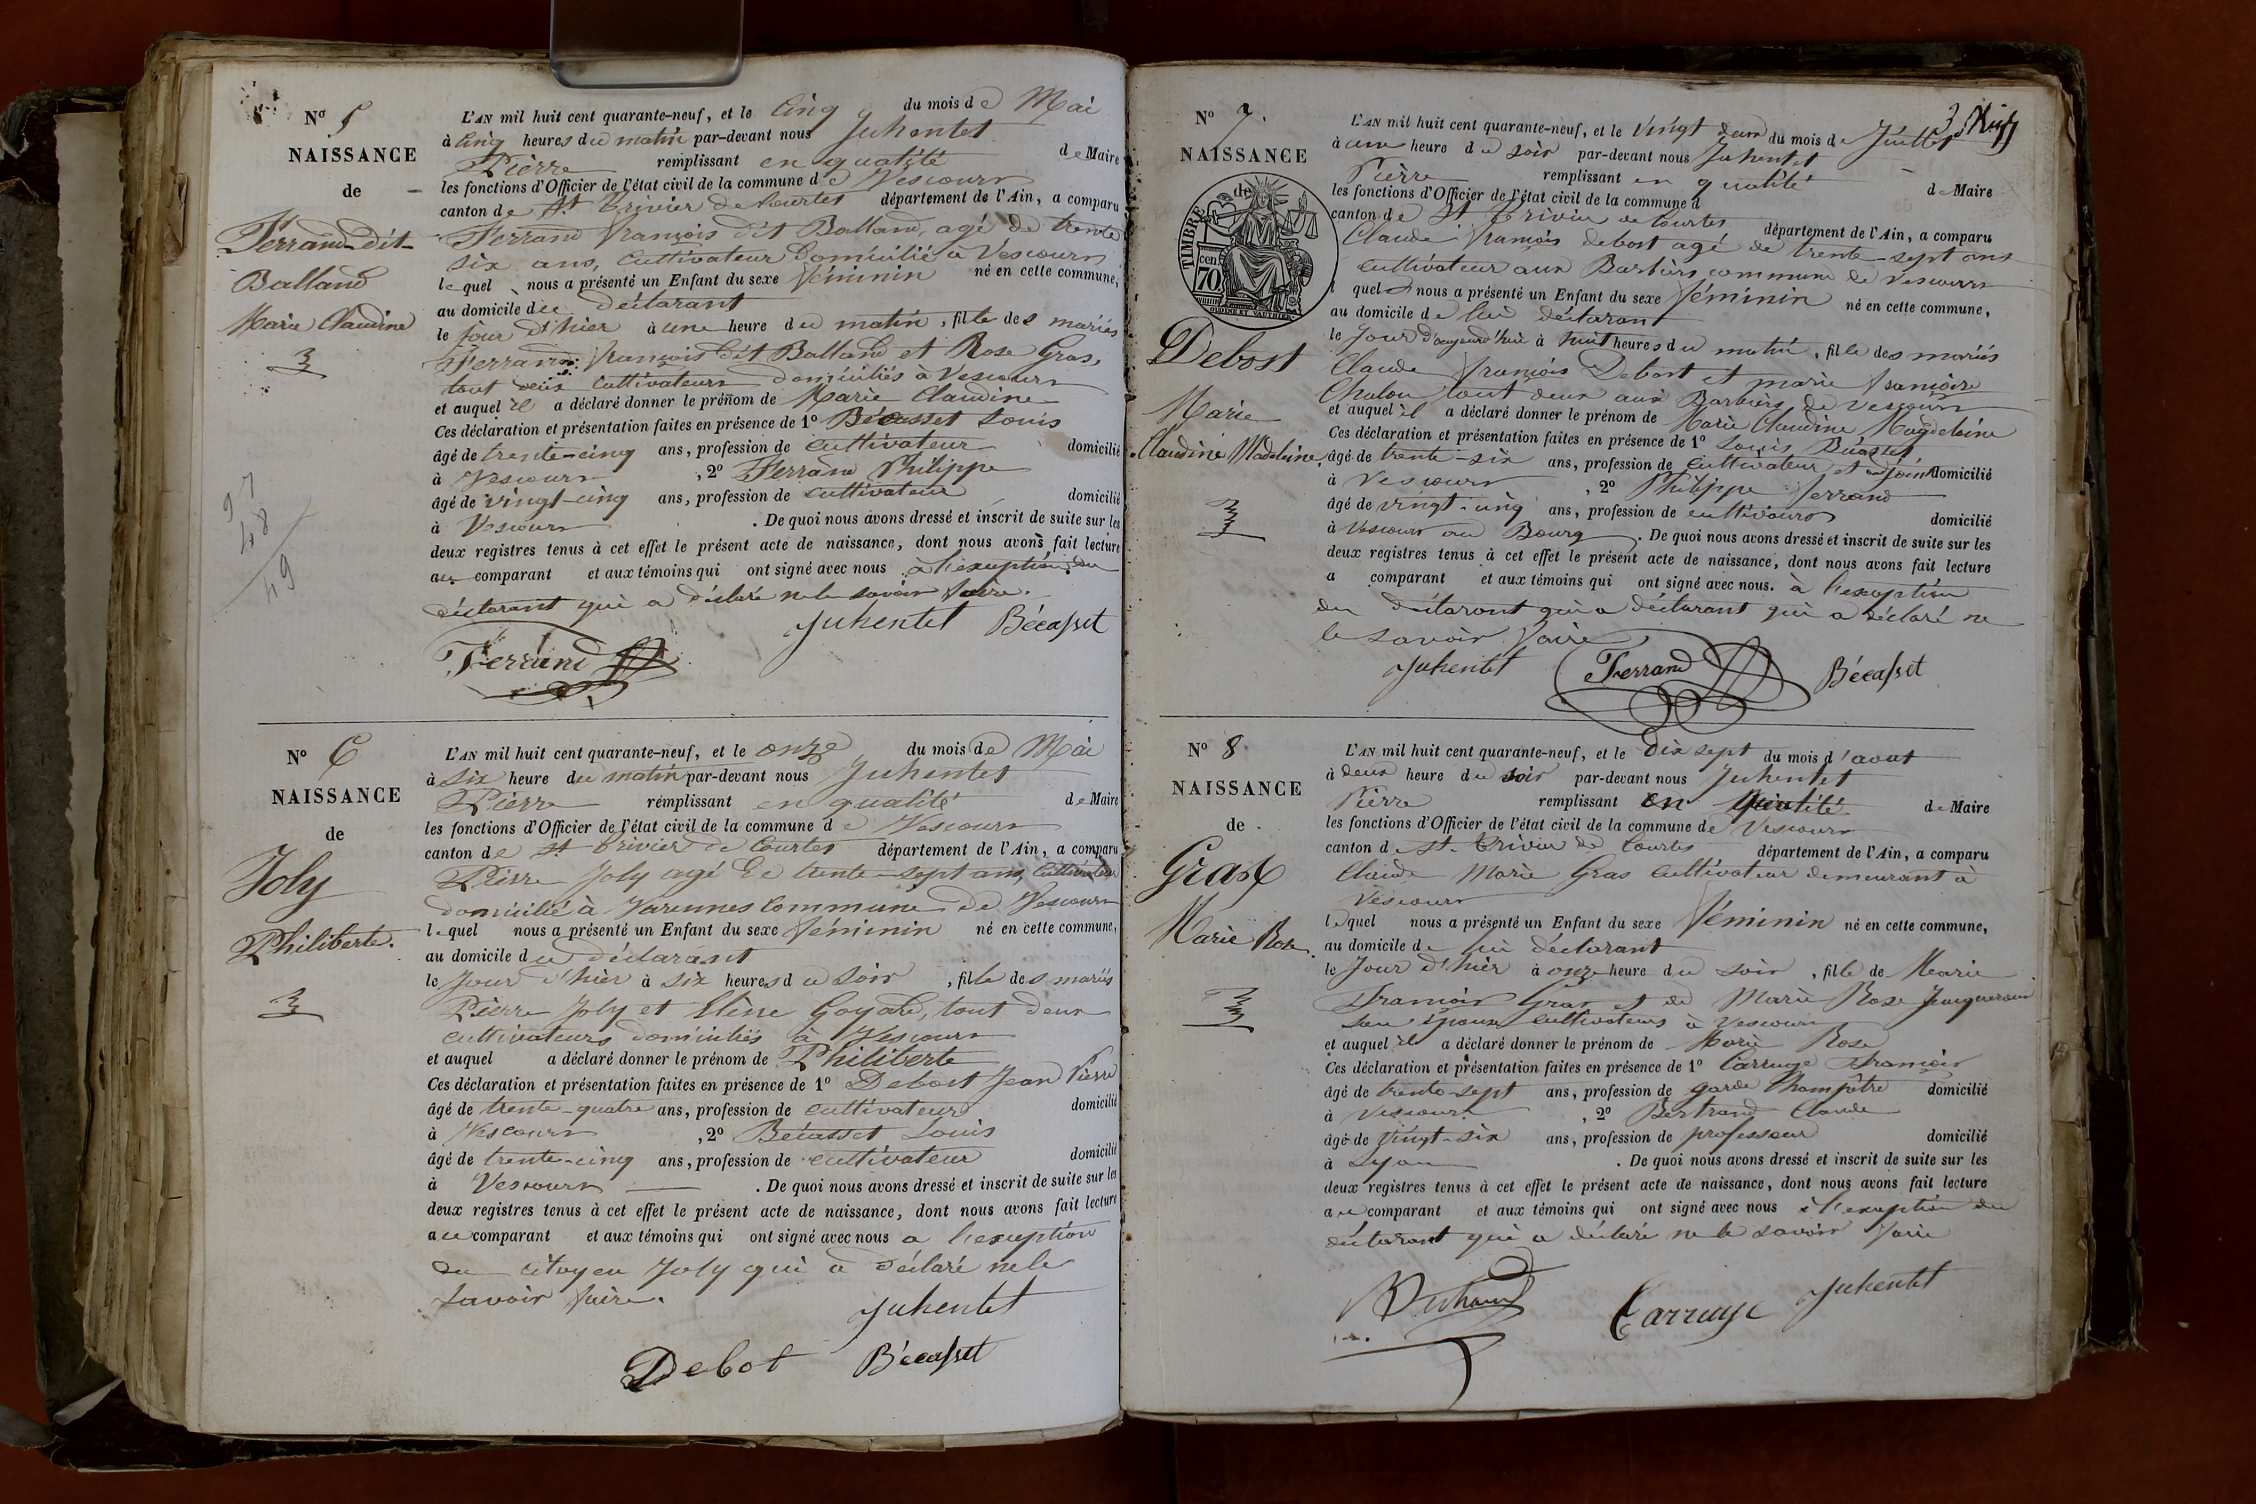 N° 5
NAISSANCE
de
Ferrand dit
Balland
Marie Claudine
L'AN mil huit cent quarante-neuf, et le Cinq du mois de Mai
à Cinq heures du matin par-devant nous Juhentet
Pierre remplissant en qualité de Maire
les fonctions d'Officier de l'état civil de la commune de Vescours
canton de St Trivier de Courtes département de l'Ain, a comparu
Ferrand françois dit Balland, agé de trente
six ans, Cultivateur domicilié à Vescours
lequel nous a présenté un Enfant du sexe féminin né en cette commune,
au domicile du déclarant
le jour d'hier à une heure du matin, fille des mariés
Ferrand françois dit Balland et Rose Gras,
tout deux Cultivateurs domiciliés à Vescours
et auquel il a déclaré donner le prénom de Marie Claudine
Ces déclaration et présentation faites en présence de 1° Bécasset Louis
âgé de trente-cinq ans, profession de Cultivateur domicilié
à Vescours, 2° Ferrand Philippe
âgé de vingt-cinq ans, profession de cultivateur domicilié
à Vescours. De quoi nous avons dressé et inscrit de suite sur les
deux registres tenus à cet effet le présent acte de naissance, dont nous avons fait lecture
au comparant et aux témoins qui ont signé avec nous à l'exception du
déclarant qui a déclaré ne le savoir faire.
Juhentet Bécasset
Ferrand
97
48
49
N° 6
NAISSANCE
de
Joly
Philiberte.
L'AN mil huit cent quarante-neuf, et le onze du mois de Mai
à six heure du matin par-devant nous Juhentet
Pierre remplissant en qualité de Maire
les fonctions d'Officier de l'état civil de la commune de Vescours
canton de St Trivier de Courtes département de l'Ain, a comparu
Pierre Joly agé de trente-sept ans, Cultivateur
domicilié à Varennes Commune de Vescours
lequel nous a présenté un Enfant du sexe féminin né en cette commune,
au domicile du déclarant
le Jour d'hier à six heures du soir, fille des mariés
Pierre Joly et Elène Goyard, tout deux
cultivateurs domiciliés à Vescours
et auquel a déclaré donner le prénom de Philiberte
Ces déclaration et présentation faites en présence de 1° Debost Jean Pierre
âgé de trente-quatre ans, profession de cultivateur domicilié
à Vescours, 2° Bécasset Louis
âgé de trente-cinq ans, profession de cultivateur domicilié
à Vescours. De quoi nous avons dressé et inscrit de suite sur les
deux registres tenus à cet effet le présent acte de naissance, dont nous avons fait lecture
au comparant et aux témoins qui ont signé avec nous a l'exception
du citoyen Joly qui a déclaré ne le
savoir faire.
Juhentet
Debot Bécasset
N° 7.
NAISSANCE
de
TIMBRE
70 cen
Debost
Marie
Claudine Madeleine
L'AN mil huit cent quarante-neuf, et le vingt deux du mois de Juillet
à une heure du soir par-devant nous Juhentet
Pierre remplissant en qualité de Maire
les fonctions d'Officier de l'état civil de la commune d
canton de St Trivier de Courtes département de l'Ain, a comparu
Claude françois debost agé de trente-sept ans
cultivateur aux Barbiers commune de Vescours
lequel nous a présenté un Enfant du sexe féminin né en cette commune,
au domicile de lui déclarant
le Jour d'aujourd'hui à huit heures du matin, fille des mariés
Claude françois Debost et marie françoise
Chalon tout deux aux Barbiers de Vescours
et auquel il a déclaré donner le prénom de Marie Claudine Magdeleine
Ces déclaration et présentation faites en présence de 1° Louis Bécasset
âgé de trente-six ans, profession de Cultivateur et adjoint domicilié
à Vescours, 2° Philippe ferrand
âgé de vingt-cinq ans, profession de cultivateur domicilié
à Vescours au Bourg. De quoi nous avons dressé et inscrit de suite sur les
deux registres tenus à cet effet le présent acte de naissance, dont nous avons fait lecture
a comparant et aux témoins qui ont signé avec nous. à l'exception
du déclarant qui a déclarant qui a déclaré ne
le savoir faire
Juhentet Ferrand Bécasset
N° 8.
NAISSANCE
de
Gras
Marie Rose.
L'AN mil huit cent quarante-neuf, et le dix sept du mois d'aout
à deux heure du soir par-devant nous Juhentet
Pierre remplissant en qualité de Maire
les fonctions d'Officier de l'état civil de la commune de Vescours
canton de St. Trivier de Courtes département de l'Ain, a comparu
Claude Marie Gras Cultivateur demeurant à
Vescours
lequel nous a présenté un Enfant du sexe féminin né en cette commune,
au domicile de lui déclarant
le Jour d'hier à onze heure du soir, fille de Marie
François Gras et de Marie Rose
son épouse cultivateurs à Vescours
et auquel il a déclaré donner le prénom de Marie Rose
Ces déclaration et présentation faites en présence de 1° Carruge François
âgé de trente-sept ans, profession de garde Champêtre domicilié
à Vescours, 2° Bertrand Claude
âgé de vingt-six ans, profession de professeur domicilié
à Lyon. De quoi nous avons dressé et inscrit de suite sur les
deux registres tenus à cet effet le présent acte de naissance, dont nous avons fait lecture
au comparant et aux témoins qui ont signé avec nous à l'exception du
déclarant qui a déclaré ne le savoir faire
Carruge Juhentet